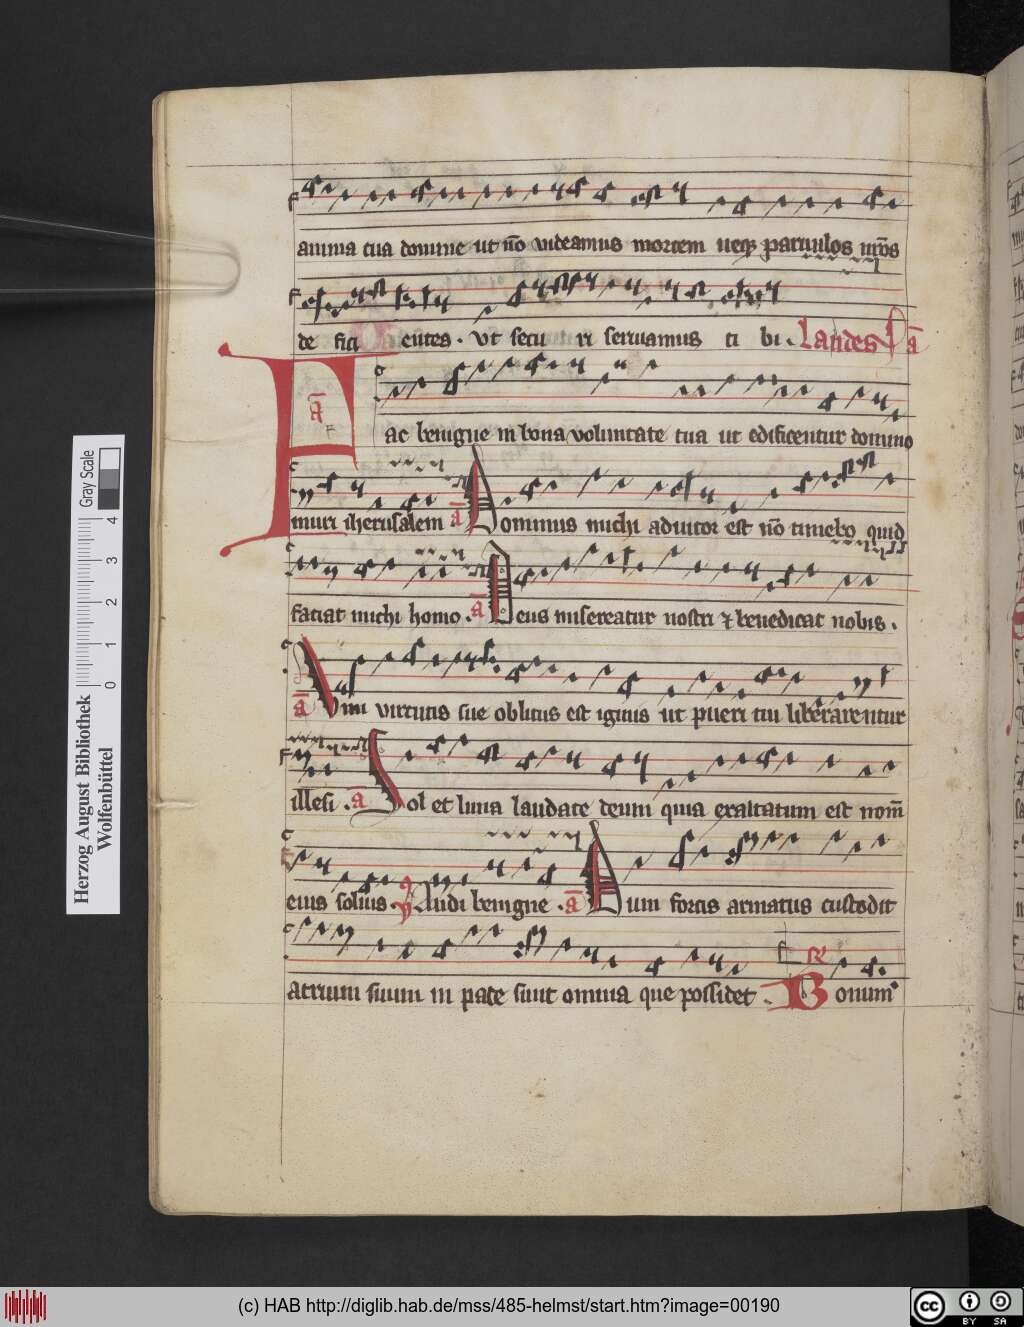 anima tua domine ut nō videamus mortem neqȝ paruulos nr̄os
de fici entes . vt secu ri seruiamus ti bi . Laudes ā
ā
Fac benigne in bona voluntate tua ut edificentur domino
muri iherusalem ā Dominus michi adiutor est nō timebo quid
faciat michi homo . ā Deus misereatur nostri ⁊ benedicat nobis .
ā Viri virtutis sue oblitus est ignis ut pueri tui liberarentur
illesi . ā Sol et luna laudate deum quia exaltatum est nom̄
eius solius . Audi benigne . ā Dum fortis armatus custodit
atrium suum in pace sunt omnia que possidet . Bonum
Herzog August Bibliothek
Wolfenbüttel
0 1 2 3 4
Gray Scale
(c) HAB http://diglib.hab.de/mss/485-helmst/start.htm?image=00190
cc BY SA